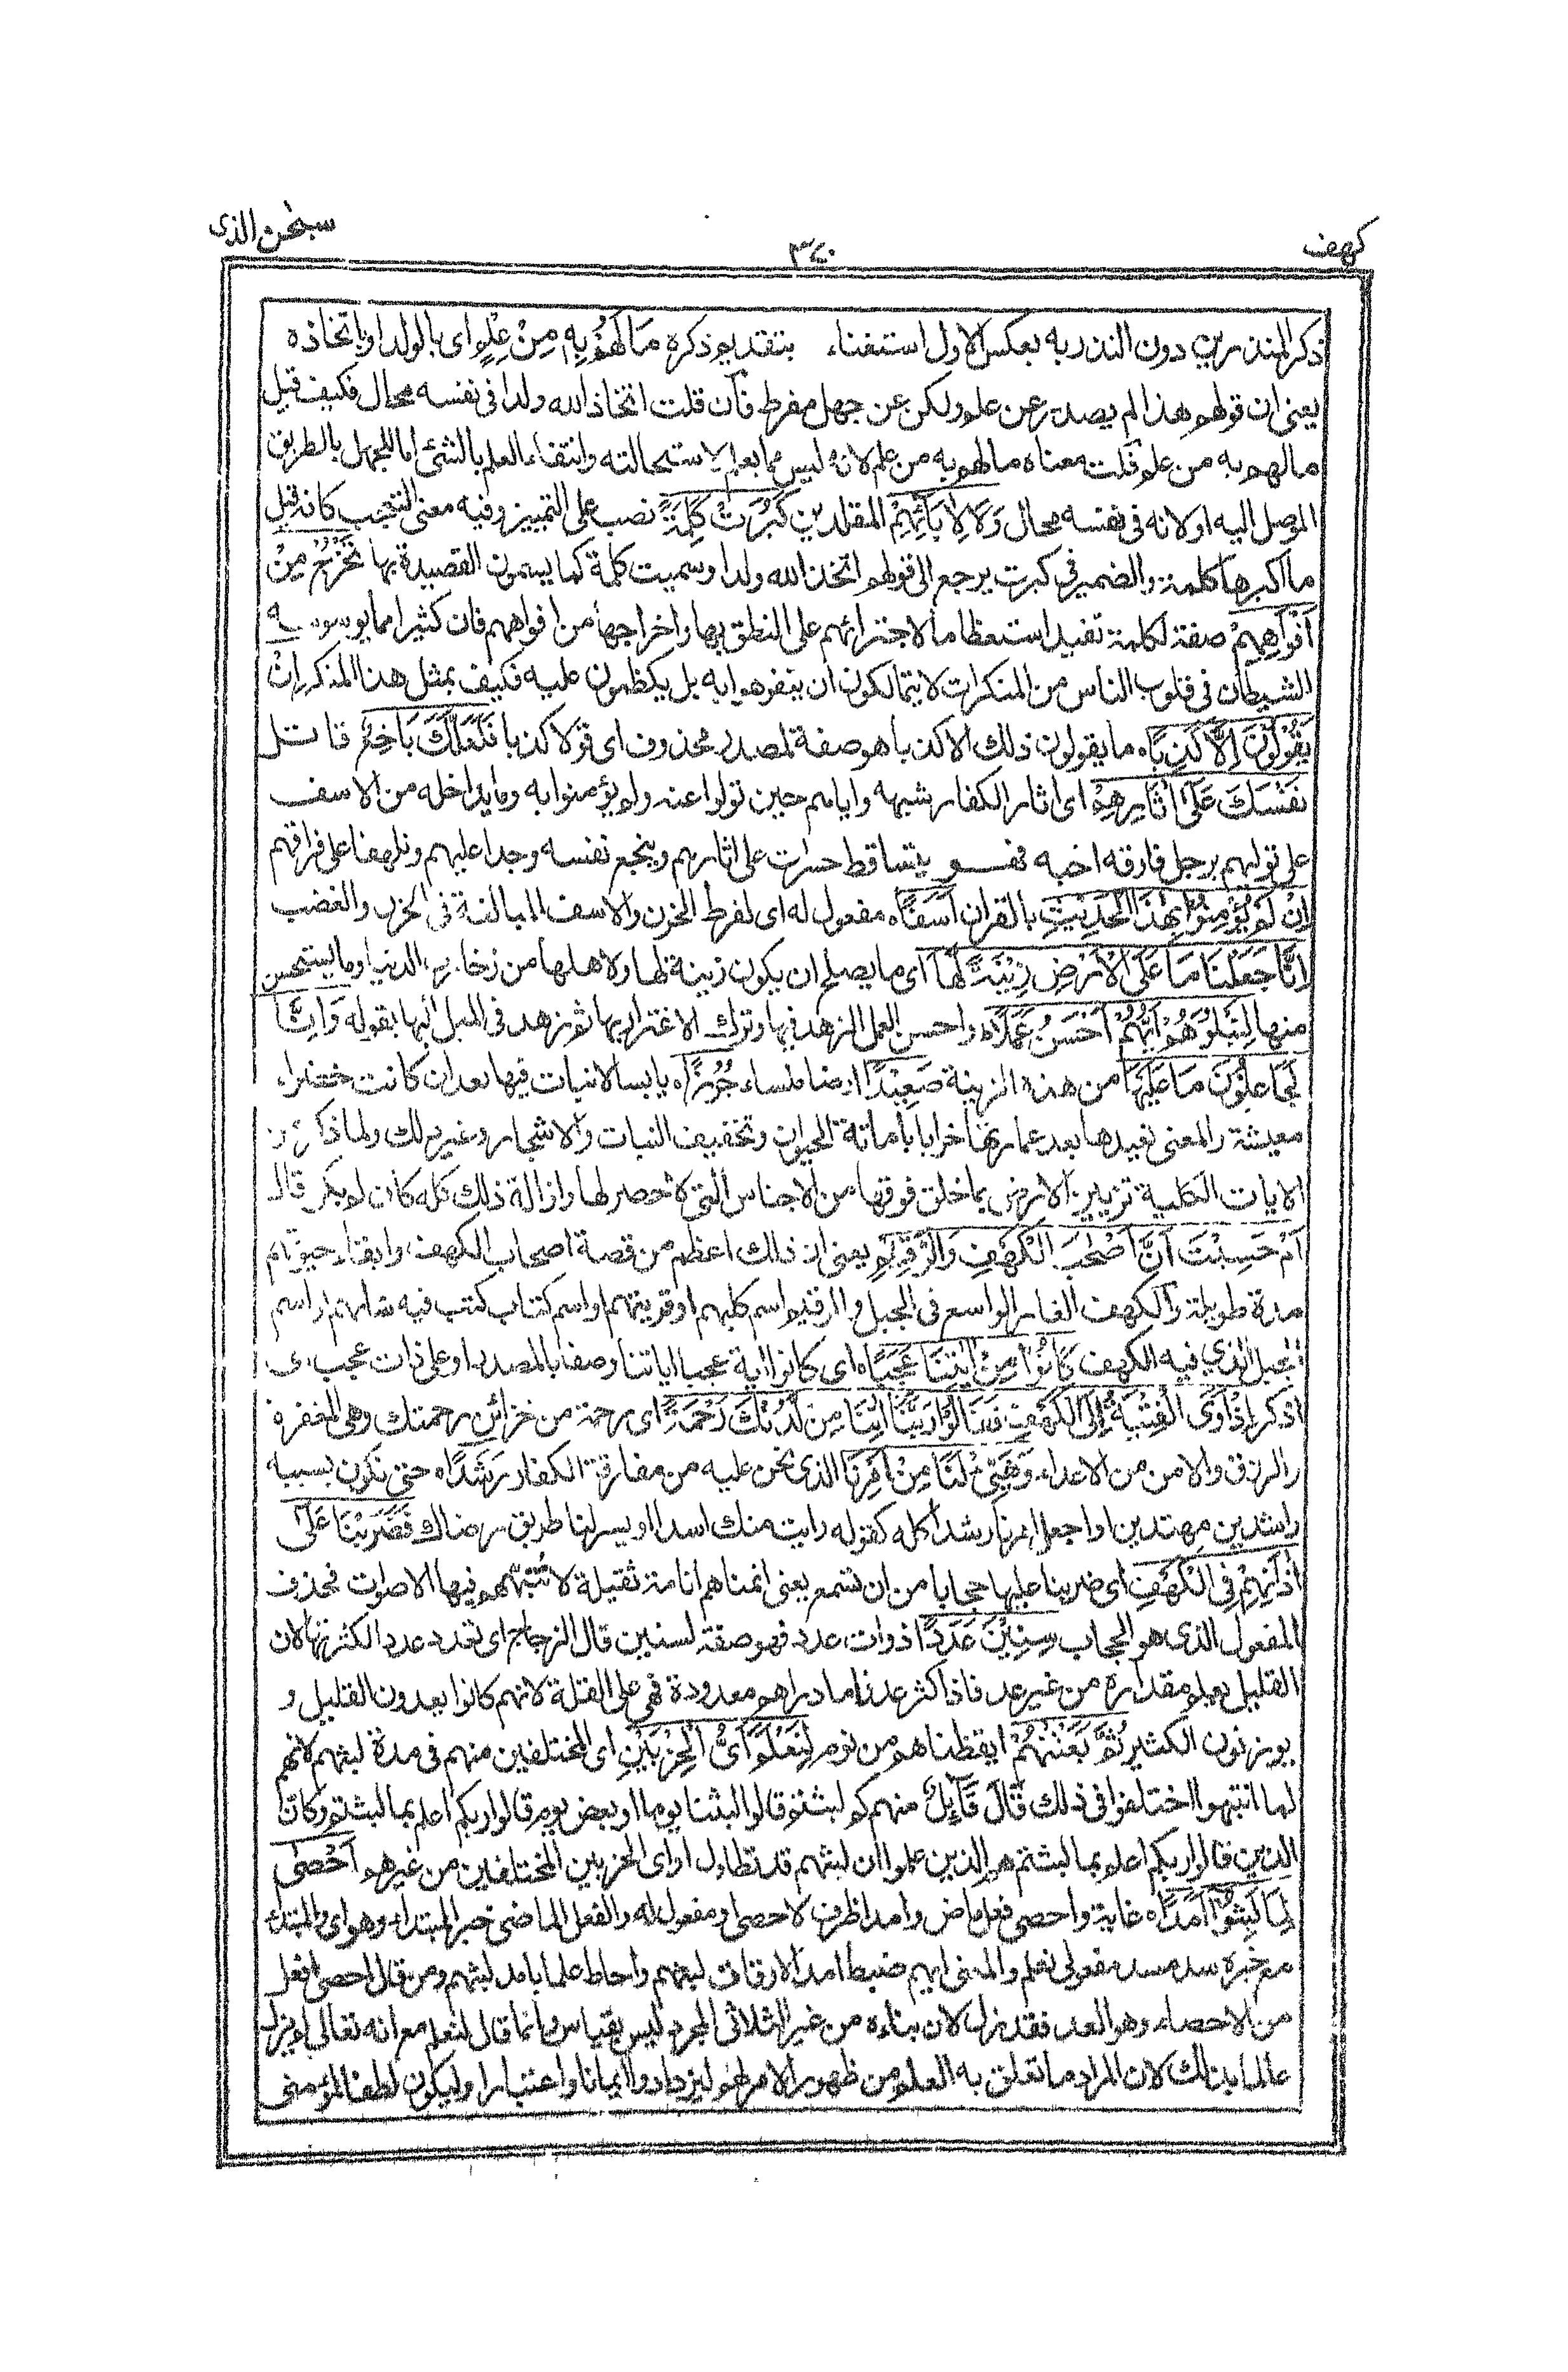 كهف
٣٤٠
سبحٰن الذى
ذكر المنذرين دون المنذر به بعكس الاول استغناء بتقديم ذكره مَا لَهُمْ بِهٖ مِنْ عِلْمٍ اى بالولد او باتخاذه
يعنى ان قولهم هذا لم يصدر عن علم ولكن عن جهل مفرط فان قلت اتخاذ الله ولدا فى نفسه محال فكيف قيل
ما لهم به من علم قلت معناه ما لهم به من علم لانه ليس مما يعلم لاستحالته وانتفاء العلم بالشئ اما للجهل بالطريق
الموصل اليه او لانه فى نفسه محال وَلَا لِاٰبَآئِهِمْ المقلدين كَبُرَتْ كَلِمَةً نصب على التمييز وفيه معنى التعجب كانه قيل
ما اكبرها كلمة والضمير فى كبرت يرجع الى قولهم اتخذ الله ولدا وسميت كلمة كما يسمون القصيدة بها تَخْرُجُ مِنْ
اَفْوَاهِهِمْ صفة لكلمة تفيد استعظاما لاجترائهم على النطق بها واخراجها من افواههم فان كثيرا مما يوسوسه
الشيطان فى قلوب الناس من المنكرات لا يتمالكون ان يتفوهوا به بل يكظمون عليه فكيف بمثل هذا المنكر اِنْ
يَقُوْلُوْنَ اِلَّا كَذِبًا ه ما يقولون ذلك الا كذبا هو صفة لمصدر محذوف اى قولا كذبا فَلَعَلَّكَ بَاخِعٌ قاتل
نَفْسَكَ عَلٰى اٰثَارِهِمْ اى اثار الكفار شبهه واياهم حين تولوا عنه ولم يؤمنوا به وما يداخله من الاسف
على توليهم برجل فارقه احبه فهو يتساقط حسرات على اثارهم ويبخع نفسه وجدا عليهم وتلهفا على فراقهم
اِنْ لَمْ يُؤْمِنُوْا بِهٰذَا الْحَدِيْثِ بالقران اَسَفًا ه مفعول له اى لفرط الحزن والاسف المبالغة فى الحزن والغضب
اِنَّا جَعَلْنَا مَا عَلَى الْاَرْضِ زِيْنَةً لَّهَا اى ما يصلح ان يكون زينة لها ولاهلها من زخارف الدنيا وما يستحسن
منها لِنَبْلُوَهُمْ اَيُّهُمْ اَحْسَنُ عَمَلًا ه واحسن العمل الزهد فيها وترك الاغترار بها ثم زهد فى الميل اليها بقوله وَاِنَّا
لَجَاعِلُوْنَ مَا عَلَيْهَا من هذه الزينة صَعِيْدًا ارضا ملساء جُرُزًا ه يابسا لا نبات فيها بعد ان كانت خضراء
معيشة والمعنى نعيدها بعد عمارتها خرابا باماتة الحيوان وتجفيف النبات والاشجار وغير ذلك ولما ذكر من
الايات الكلية تزيين الارض بما خلق فوقها من الاجناس التى لا حصر لها وازالة ذلك كله كان لم يكن قال
اَمْ حَسِبْتَ اَنَّ اَصْحٰبَ الْكَهْفِ وَالرَّقِيْمِ يعنى ان ذلك اعظم من قصة اصحاب الكهف وابقاء حيوتهم
مدة طويلة والكهف الغار الواسع فى الجبل والرقيم اسم كلبهم او قريتهم او اسم كتاب كتب فيه شانهم او اسم
الجبل الذى فيه الكهف كَانُوْا مِنْ اٰيٰتِنَا عَجَبًا ه اى كانوا اية عجبا من اياتنا وصفا بالمصدر او على ذات عجب اى
اذكر اِذْ اَوَى الْفِتْيَةُ اِلَى الْكَهْفِ فَقَالُوْا رَبَّنَا اٰتِنَا مِنْ لَّدُنْكَ رَحْمَةً اى رحمة من خزائن رحمتك وهى المغفرة
والرزق والامن من الاعداء وَهَيِّئْ لَنَا مِنْ اَمْرِنَا الذى نحن عليه من مفارقة الكفار رَشَدًا ه حتى نكون بسببه
راشدين مهتدين او اجعل امرنا رشدا كله كقوله رايت منك اسدا او يسر لنا طريق رضاك فَضَرَبْنَا عَلٰى
اٰذَانِهِمْ فِى الْكَهْفِ اى ضربنا عليها حجابا من ان تسمع يعنى انمناهم انامة ثقيلة لا تنبههم فيها الاصوات فحذف
المفعول الذى هو الحجاب سِنِيْنَ عَدَدًا ذوات عدد فهو صفة لسنين قال الزجاج اى تعدد عدد الكثرتها لان
القليل يعلم مقداره من غير عد فاذا كثر عد فاما دراهم معدودة فهى على القلة لانهم كانوا يعدون القليل و
يوزنون الكثير ثُمَّ بَعَثْنٰهُمْ ايقظناهم من نوم لِنَعْلَمَ اَىُّ الْحِزْبَيْنِ اى المختلفين منهم فى مدة لبثهم لانهم
لما انتبهوا اختلفوا فى ذلك قَالَ قَآئِلٌ منهم كم لبثتم قالوا لبثنا يوما او بعض يوم قالوا ربكم اعلم بما لبثتم وكان
الذين قالوا ربكم اعلم بما لبثتم هم الذين علموا ان لبثهم قد تطاول او اى الحزبين المختلفين من غيرهم اَحْصٰى
لِمَا لَبِثُوْا اَمَدًا ه غاية واحصى فعل ماض وامدا ظرف لاحصى او مفعول له والفعل الماضى خبر المبتداء وهو اى والمبتداء
مع خبره سد مسد مفعولى نعلم والمعنى ايهم ضبط امدا لاوقات لبثهم واحاط علما بامد لبثهم ومن قال احصى افعل
من الاحصاء وهو العد فقد زل لان بناءه من غير الثلاثى المجرد ليس بقياس وانما قال لنعلم مع انه تعالى لم يزل
عالما بذلك لان المراد ما تعلق به العلم من ظهور الامر لهم ليزدادوا ايمانا واعتبارا وليكون لطفا لمؤمنى